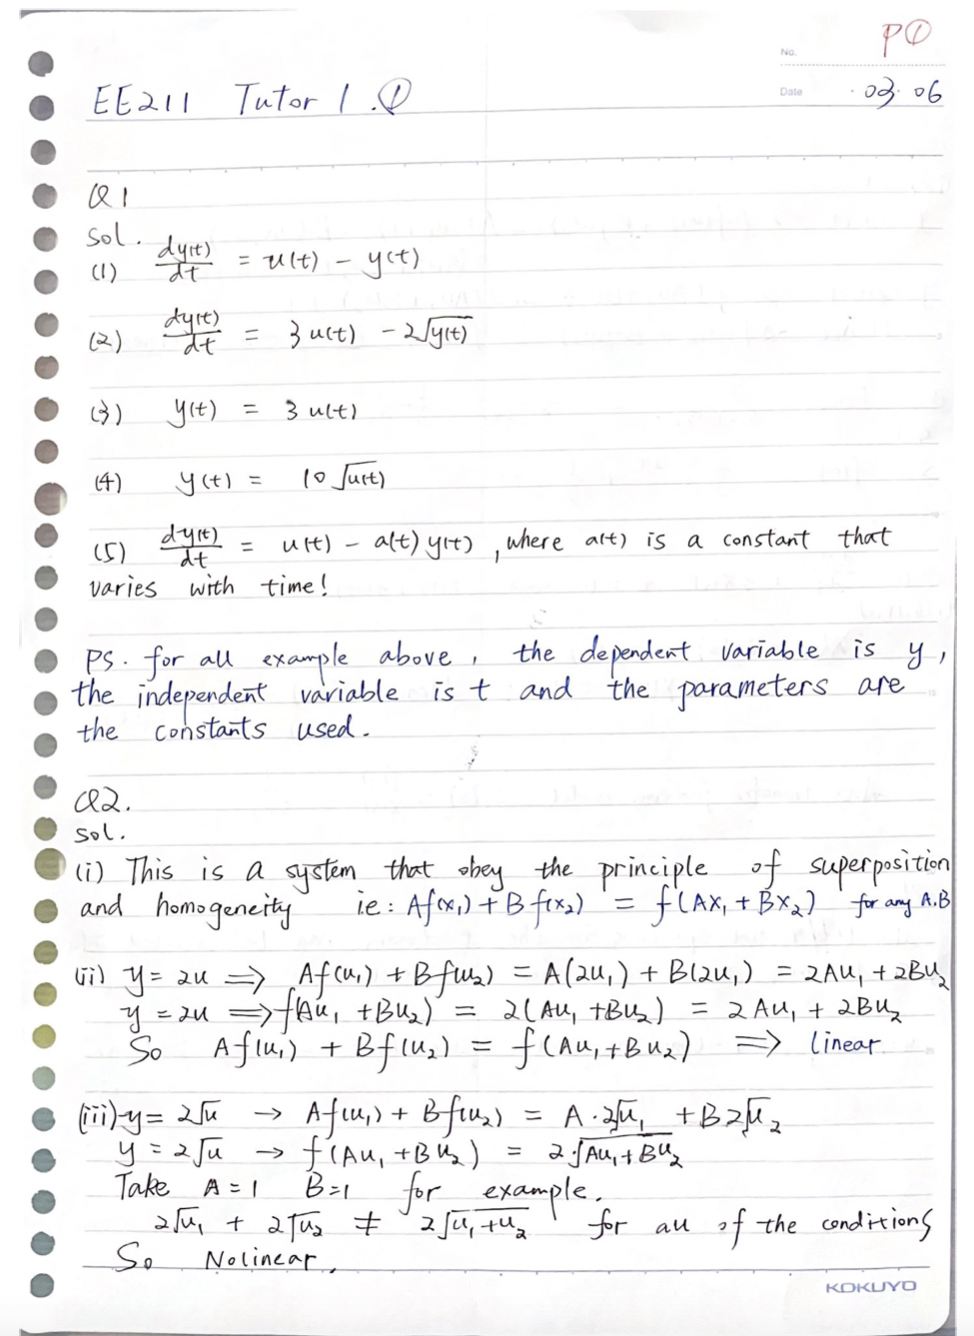 P①
No.
EE211 Tutor 1 .①
Date . 03. 06
Q1
Sol.
(1) dy(t)/dt = u(t) - y(t)
(2) dy(t)/dt = 3 u(t) - 2√y(t)
(3) y(t) = 3 u(t)
(4) y(t) = 10 √u(t)
(5) dy(t)/dt = u(t) - a(t) y(t) , where a(t) is a constant that
varies with time!
PS. for all example above, the dependent variable is y,
the independent variable is t and the parameters are
the constants used.
Q2.
Sol.
(i) This is a system that obey the principle of superposition
and homogeneity ie: Af(x₁) + B f(x₂) = f(Ax₁ + Bx₂) for any A.B
(ii) y = 2u ⟹ Af(u₁) + Bf(u₂) = A(2u₁) + B(2u₁) = 2Au₁ + 2Bu₂
y = 2u ⟹ f(Au₁ + Bu₂) = 2(Au₁ + Bu₂) = 2Au₁ + 2Bu₂
So Af(u₁) + Bf(u₂) = f(Au₁ + Bu₂) ⟹ linear
(iii) y = 2√u → Af(u₁) + Bf(u₂) = A·2√u₁ + B2√u₂
y = 2√u → f(Au₁ + Bu₂) = 2·√Au₁ + Bu₂
Take A=1 B=1 for example.
2√u₁ + 2√u₂ ≠ 2√u₁ + u₂ for all of the conditions
So Nolinear.
KOKUYO